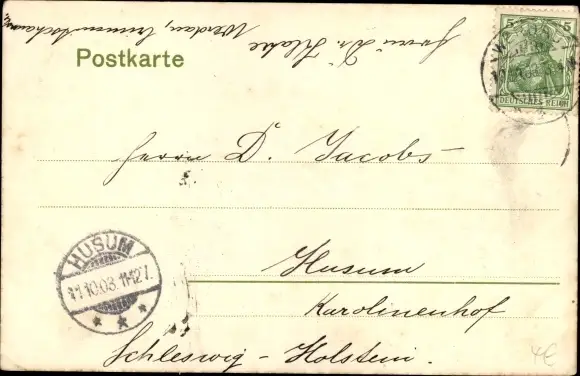 Postkarte
5 5
DEUTSCHES REICH
Herrn D. Jacobs
Husum
Karolinenhof
Schleswig - Holstein.
HUSUM
11.10.03. 11-12 V.
Herrn Dr.
Werdau,
4€